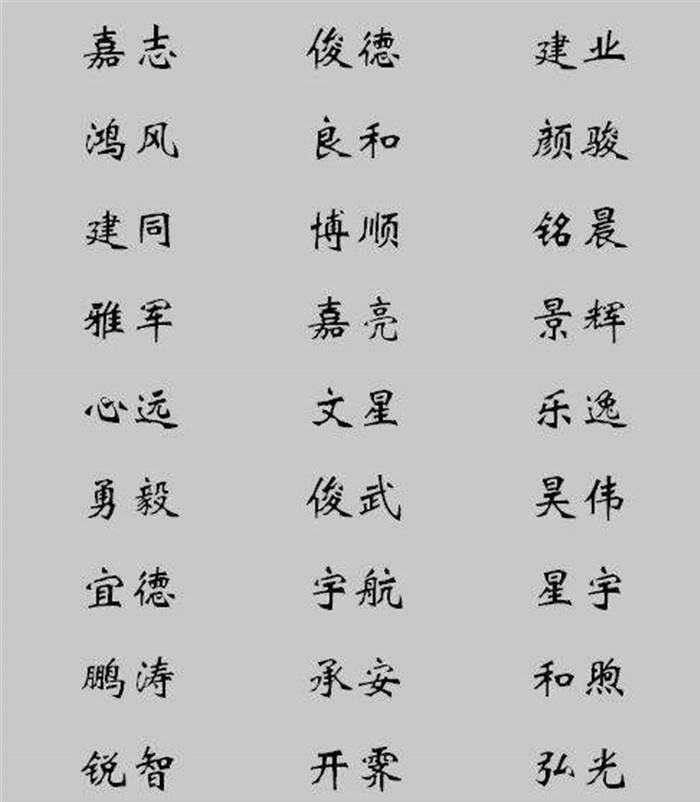 嘉志 俊德 建业
鸿风 良和 颜骏
建同 博顺 铭晨
雅军 嘉亮 景辉
心远 文星 乐逸
勇毅 俊武 昊伟
宜德 宇航 星宇
鹏涛 承安 和煦
锐智 开霁 弘光